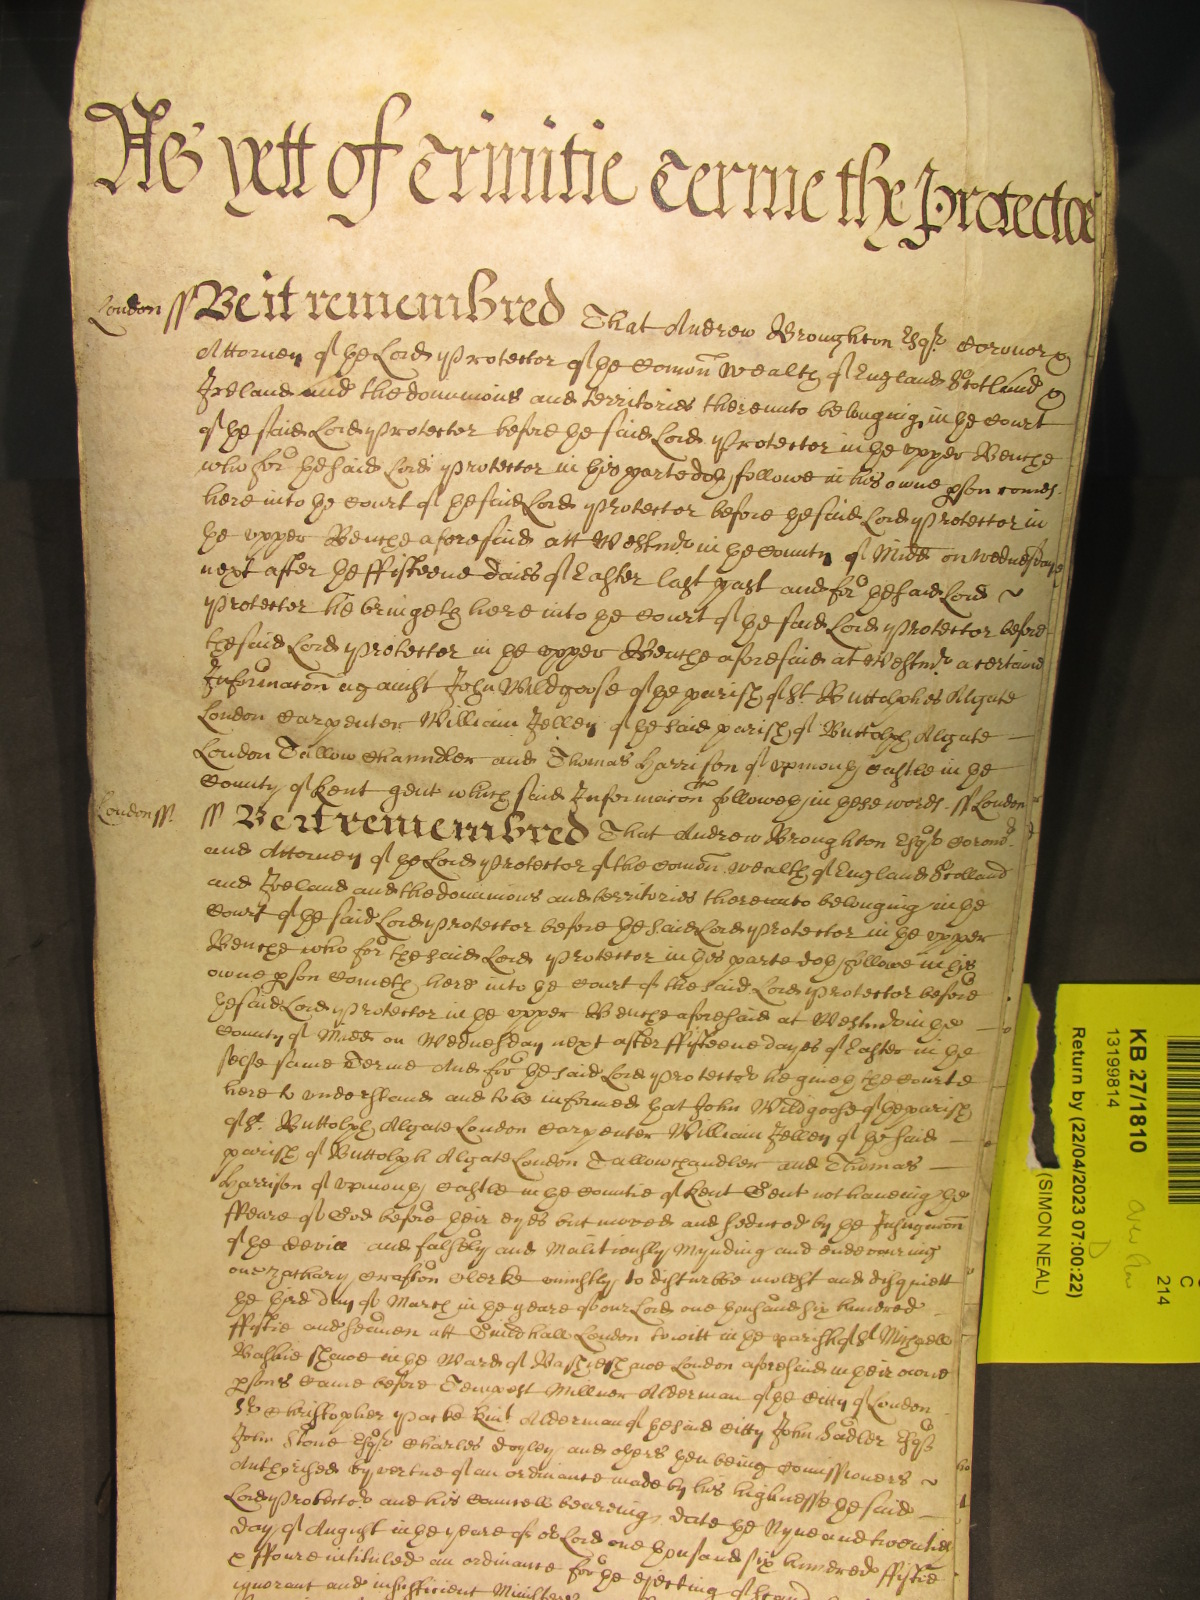 As yett of Trinitie Terme the Protector
London ss Be it remembred That Andrew Broughton Esqr Coroner &
Attorney of the Lord Protector of the Comon Wealth of England Scotland &
Ireland and the dominions and territories thereunto belonging in the Court
of the said Lord Protector before the said Lord Protector in the vpper Benche
who for the said Lord Protector in this parte doth followe in his owne pson comes
here into the Court of the said Lord Protector before the said Lord Protector in
the vpper Benche aforesaid att Westmr in the County of Midd on Wednesdaye
next after the ffifteene daies of Easter last past and for the said Lord
Protector he bringeth here into the Court of the said Lord Protector before
the said Lord Protector in the vpper Benche aforesaid at Westmr a certaine
Informacon against John Wildgoose of the parish of St Buttolphes Algate
London Carpenter William Jelley of the said parish of Buttolph Algate
London Tallow Channdler and Thomas Harrison of vpmouth Castle in the
County of Kent gent which said Informacon followeth in these words ss London
London ss. ss Be it remembred That Andrew Broughton Esqr Coronr
and Attorney of the Lord Protector of the Comon wealth of England Scotland
and Ireland and the dominions and territories thereunto belonging in the
Court of the said Lord Protector before the said Lord Protector in the vpper
Benche who for the said Lord Protector in this parte doth followe in his
owne pson Cometh here into the Court of the said Lord Protector before
the said Lord Protector in the vpper Benche aforesaid at Westmr in the
County of Midd on Wednesday next after ffifteene dayes of Easter in the
selfe same Terme And for the said Lord Protector he giueth the Courte
here to vnderstand and to be informed that John Wildgoose of the parish
of St. Buttolph Algate London Carpenter William Jelley of the said
parish of Buttolph Algate London Tallowchandler and Thomas
Harrison of vpmouth Castle in the Countie of Kent Gent not haueing the
ffeare of God before their eyes but moved and seduced by the Instigacon
of the devill and falsely and Malitiously Mynding and endevouring
one Zachary Crafton Clerke vniustly to disturbe molest and disquiett
the third day of March in the yeare of our Lord one thousand six hundred
ffiftie and seauen att Guildhall London to witt in the parish of St Michaell
Bashieshawe in the Ward of Bashieshawe London aforesaid in their owne
psons Came before Tempest Millner Alderman of the Citty of London
Sr Christopher Packe Knt Alderman of the said Citty John Sadler Esqr
John Stone Esqr Charles Doyley and others then being Comissioners
Authorised by vertue of an ordinance made by his highnesse the said
Lord Protector and his Councell beareing date the Nyne and twentieth
day of August in the yeare of our Lord one thousand six hundred ffiftie
& ffoure intituled an ordinance for the eiecting of Scand
ignorant and insufficient Ministers
KB 27/1810
13199814
Return by (22/04/2023 07:00:22)
(SIMON NEAL)
C
214
D